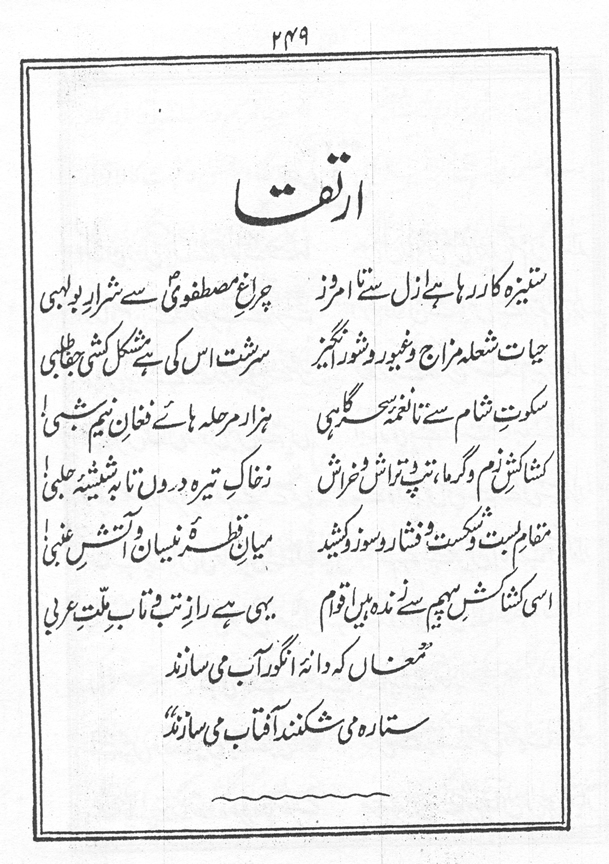 ۲۴۹
ارتقا
ستیزہ کار رہا ہے ازل سے تا امروز چراغِ مصطفویؐ سے شرارِ بولہبی
حیات شعلہ مزاج و غیور و شور انگیز سرشت اس کی ہے مشکل کشی جفا طلبی
سکوتِ شام سے تا نغمۂ سحر گاہی ہزار مرحلہ ہائے فغانِ نیم شبی!
کشاکشِ زم و گرما، تپ و تراش و خراش زخاکِ تیرہ دروں تا بہ شیشۂ حلبی!
مقامِ بست و شکست و فشار و سوز و کشید میانِ قطرۂ نیسان و آتشِ عنبی!
اسی کشاکشِ پیہم سے زندہ ہیں اقوام یہی ہے رازِ تب و تابِ ملّتِ عربی
”مغاں کہ دانۂ انگور آب می سازند
ستارہ می شکنند آفتاب می سازند“